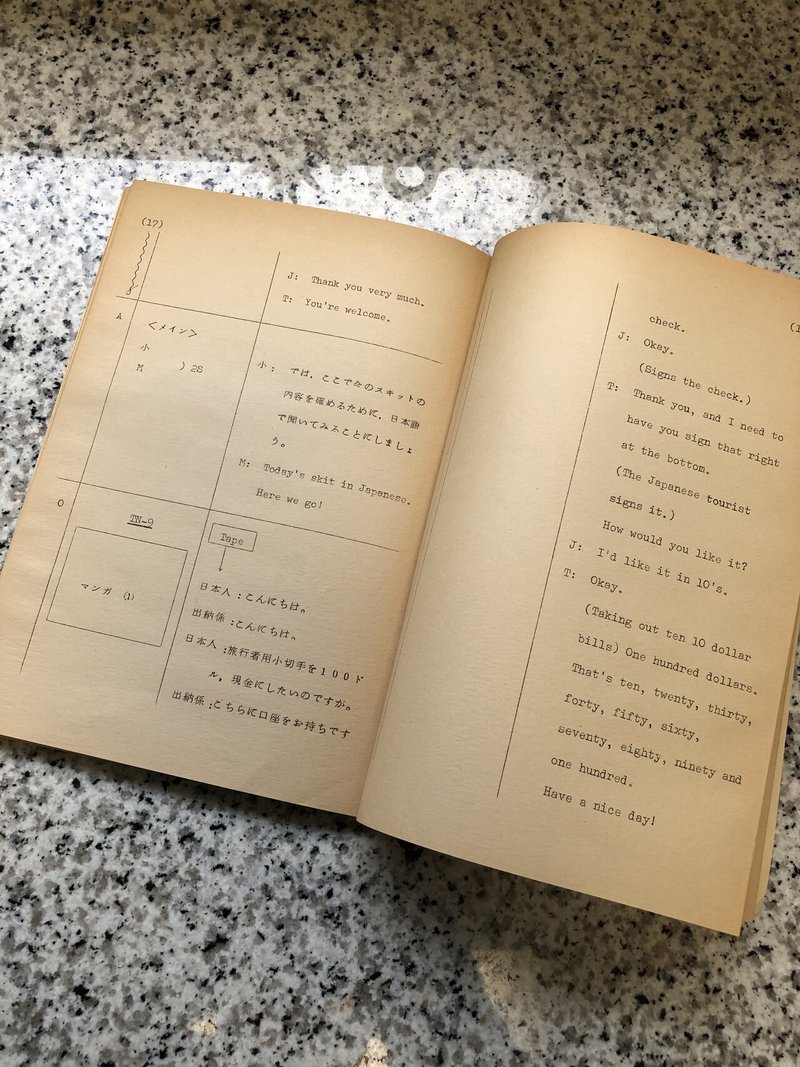 (17)
J: Thank you very much.
T: You're welcome.
A
<メイン>
小
M ) 2S
小: では、ここで今のスキットの
内容を確めるために、日本語
で聞いてみることにしましょ
う。
M: Today's skit in Japanese.
Here we go!
O
TN-9
マンガ (1)
Tape
日本人:こんにちは。
出納係:こんにちは。
日本人:旅行者用小切手を100ド
ル、現金にしたいのですが。
出納係:こちらに口座をお持ちです
check.
J: Okay.
(Signs the check.)
T: Thank you, and I need to
have you sign that right
at the bottom.
(The Japanese tourist
signs it.)
How would you like it?
J: I'd like it in 10's.
T: Okay.
(Taking out ten 10 dollar
bills) One hundred dollars.
That's ten, twenty, thirty,
forty, fifty, sixty,
seventy, eighty, ninety and
one hundred.
Have a nice day!